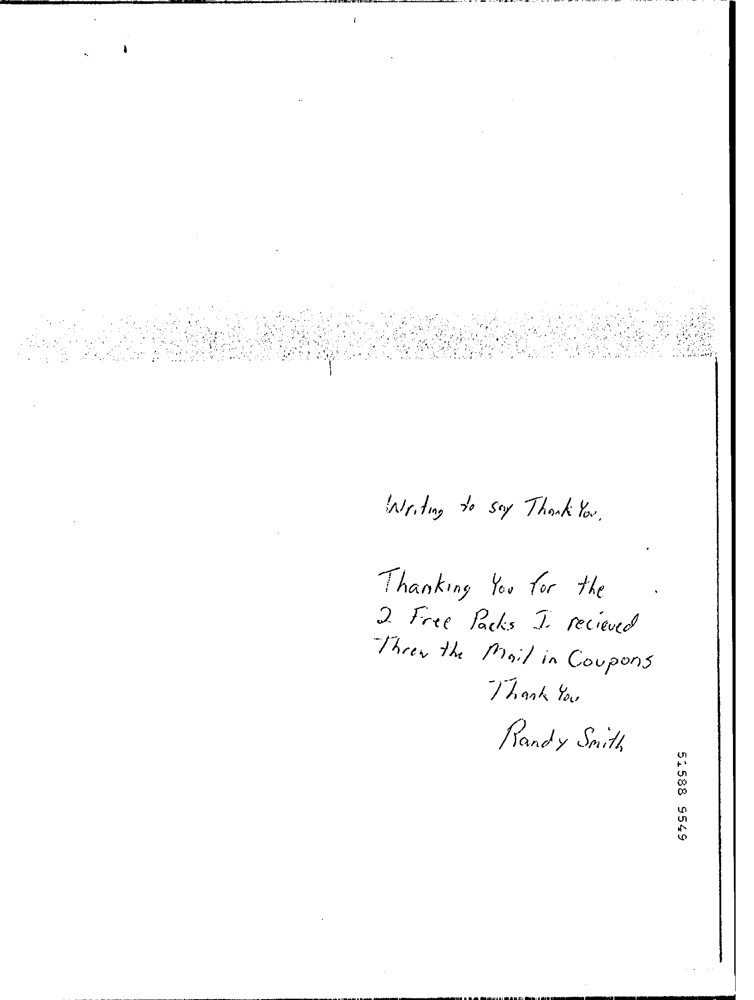 Writing to say Thank You.
Thanking You for the
2 Free Packs I recieved
Threw the Mail in Coupons
Thank You
Randy Smith
51588 9549